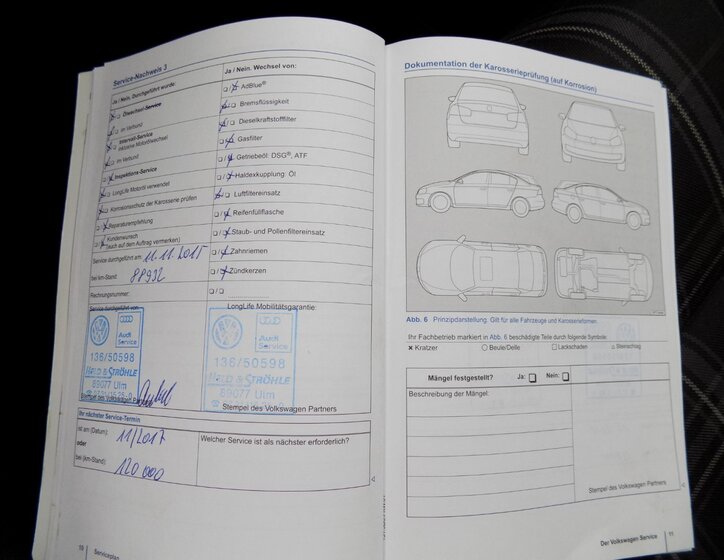 Service-Nachweis 3
Ja / Nein. Durchgeführt wurde:
Ölwechsel-Service
im Verbund
Intervall-Service
inklusive Motorölwechsel
im Verbund
Inspektions-Service
LongLife Motoröl verwendet
Korrosionsschutz der Karosserie prüfen
Reparaturempfehlung
Kundenwunsch
(auch auf dem Auftrag vermerken)
Service durchgeführt am: 11.11.2015
bei km-Stand: 88932
Rechnungsnummer:
Service durchgeführt von:
Audi
Service
136/50598
HELD & STRÖHLE
89077 Ulm
Stempel des Volkswagen Partners
Ja / Nein. Wechsel von:
AdBlue®
Bremsflüssigkeit
Dieselkraftstofffilter
Gasfilter
Getriebeöl: DSG®, ATF
Haldexkupplung: Öl
Luftfiltereinsatz
Reifenfüllflasche
Staub- und Pollenfiltereinsatz
Zahnriemen
Zündkerzen
LongLife Mobilitätsgarantie:
Audi
Service
136/50598
HELD & STRÖHLE
89077 Ulm
Stempel des Volkswagen Partners
Ihr nächster Service-Termin
ist am (Datum): 11/2017
oder
bei (km-Stand): 120 000
Welcher Service ist als nächster erforderlich?
10 Serviceplan
Dokumentation der Karosserieprüfung (auf Korrosion)
Abb. 6 Prinzipdarstellung: Gilt für alle Fahrzeuge und Karosserieformen.
Ihr Fachbetrieb markiert in Abb. 6 beschädigte Teile durch folgende Symbole:
Kratzer Beule/Delle Lackschaden Steinschlag
Mängel festgestellt? Ja: Nein:
Beschreibung der Mängel:
Stempel des Volkswagen Partners
Der Volkswagen Service 11